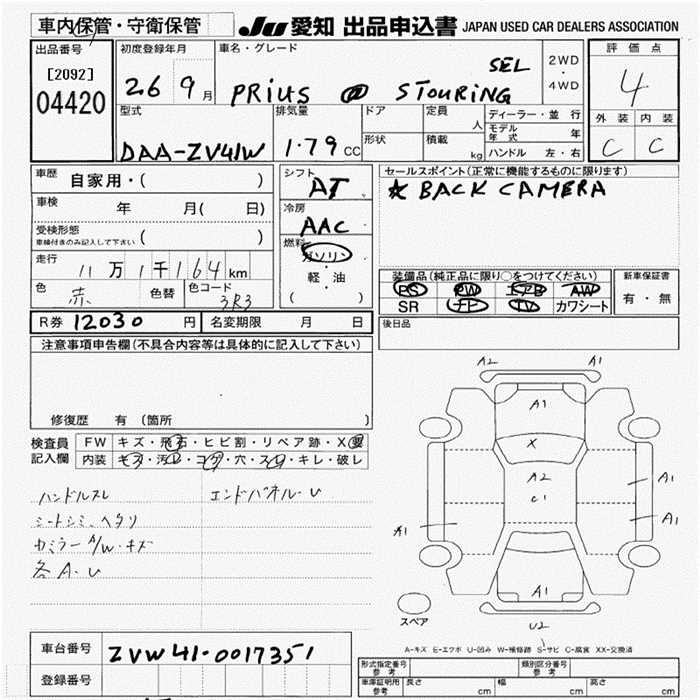 車内保管・守衛保管 JU 愛知 出品申込書 JAPAN USED CAR DEALERS ASSOCIATION
出品番号 初度登録年月 車名・グレード 評価点
[2092] 26 9月 PRIUS @ STOURING SEL 2WD・4WD 4
04420
型式 排気量 ドア 定員 人 ディーラー・並行 外装 内装
DAA-ZV41W 1.79 CC 形状 積載 kg モデル年式 年 C C
ハンドル 左・右
車歴 自家用・( ) シフト AT セールスポイント(正常に機能するものに限ります)
車検 年 月( 日) 冷房 AAC ★ BACK CAMERA
受検形態 ( )
車検付きのみ記入して下さい
燃料 ガソリン・軽・油 ( )
走行 11万1千164km
装備品(純正品に限り○をつけてください) 新車保証書
色 赤 色替 色コード 3R3 PS PW エアB AW 有・無
SR ナビ TV カワシート
R券 12030 円 名変期限 月 日 後日品
注意事項申告欄(不具合内容等は具体的に記入して下さい)
修復歴 有 (箇所 )
検査員記入欄 FW キズ・飛石・ヒビ割・リペア跡・X要
内装 キズ・汚レ・コゲ・穴・スレ・キレ・破レ
ハンドルスレ エンドパネル・U
シートシミ、ヘタリ
カミラー A/W・キズ
各A・U
A2 A1
A1
X
A2
C1
A1 A1
A1
A1
スペア
U2
A-キズ E-エクボ U-凹み W-補修跡 S-サビ C-腐食 XX-交換済
車台番号 ZVW41-0017351
登録番号
形式指定番号 参考 類別区分番号 参考
車庫証明用 参考 長さ cm 幅 cm 高さ cm